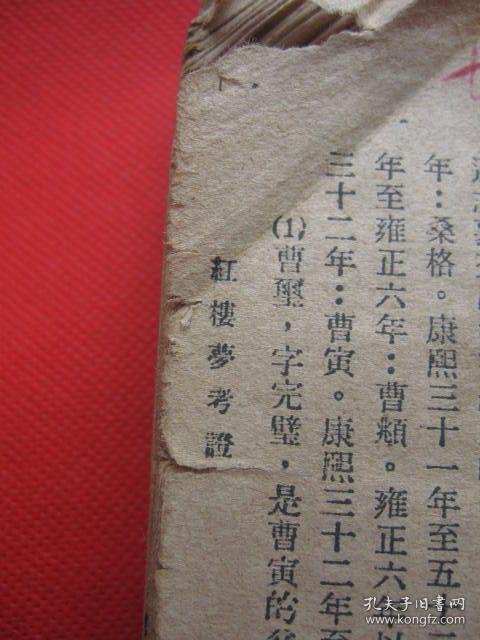 年：桑格。康熙三十一年至五十二
年至雍正六年：曹頫。雍正六年以
三十二年：曹寅。康熙三十二年至
(1)曹璽，字完璧，是曹寅的父
紅樓夢考證
孔夫子旧书网
book.kongfz.com